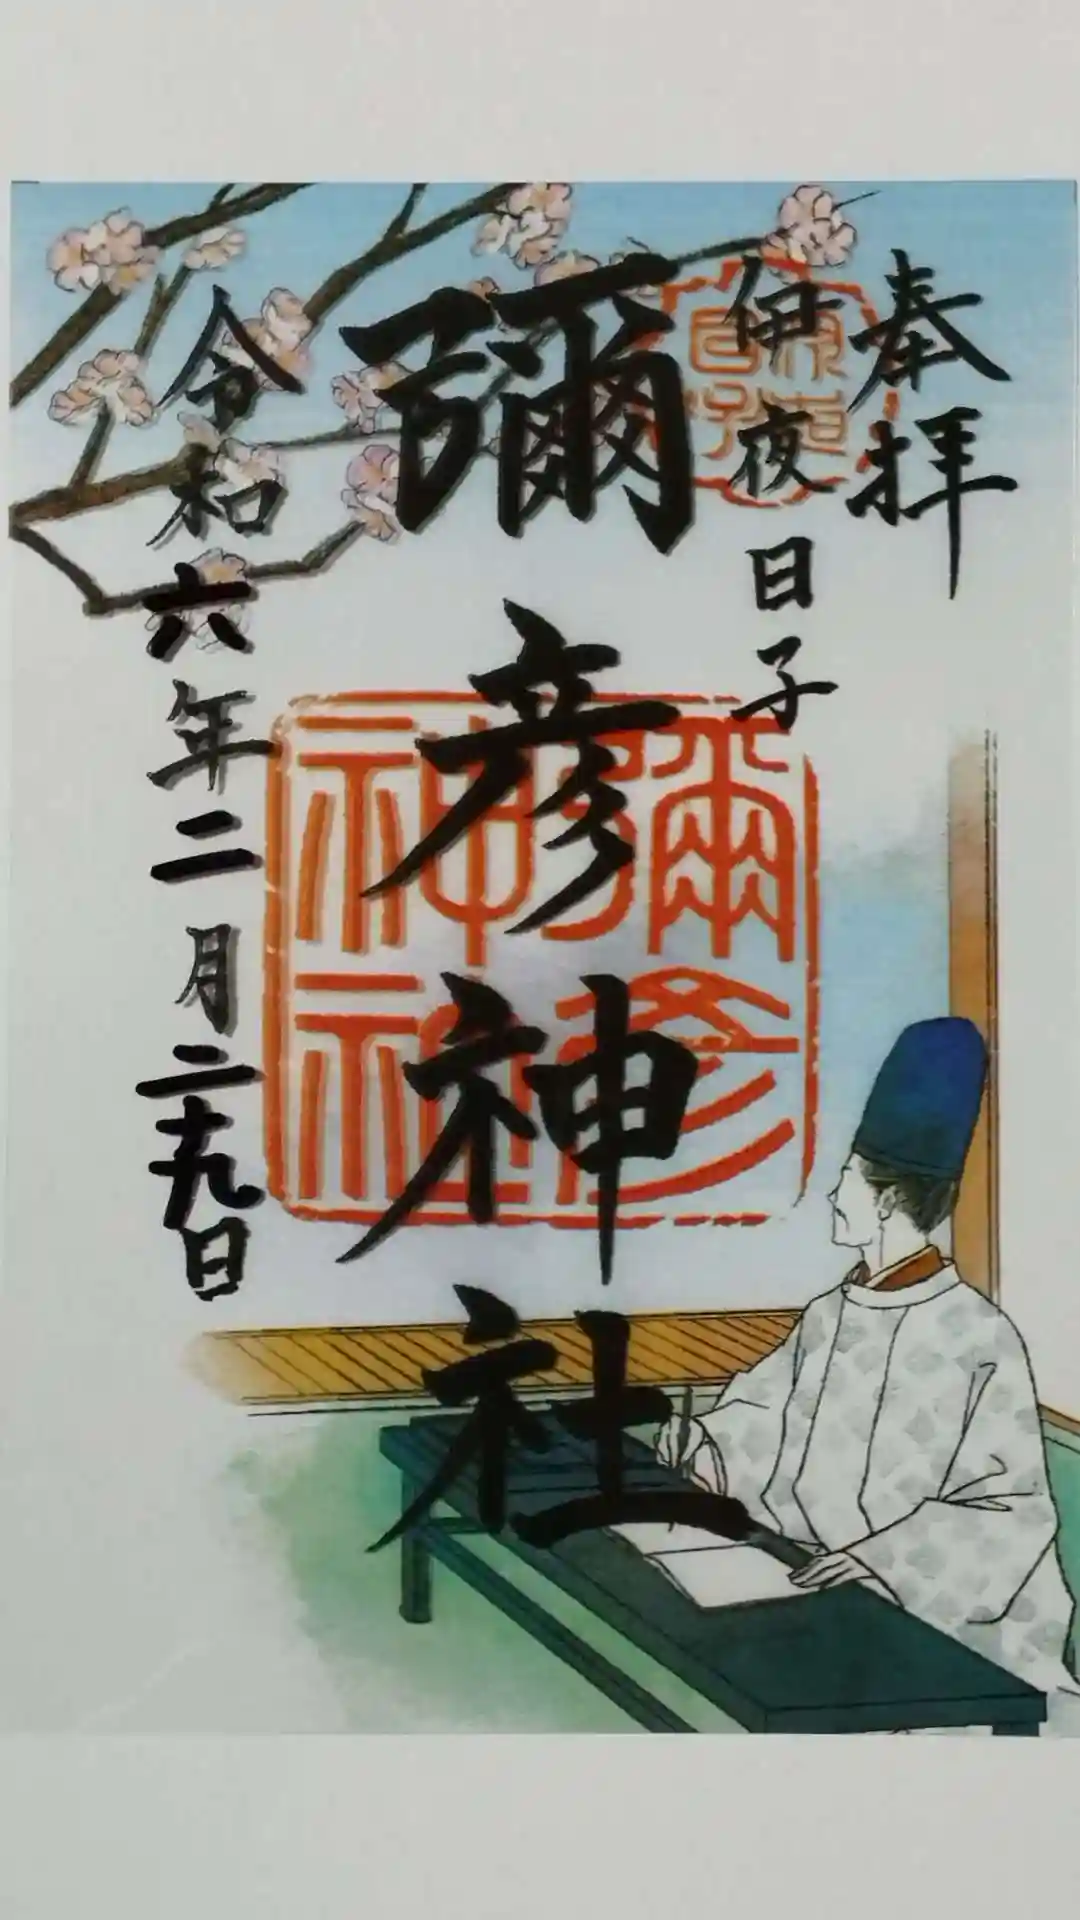 奉拝
伊夜日子
彌彦神社
彌彦
神社
令和六年二月二十九日